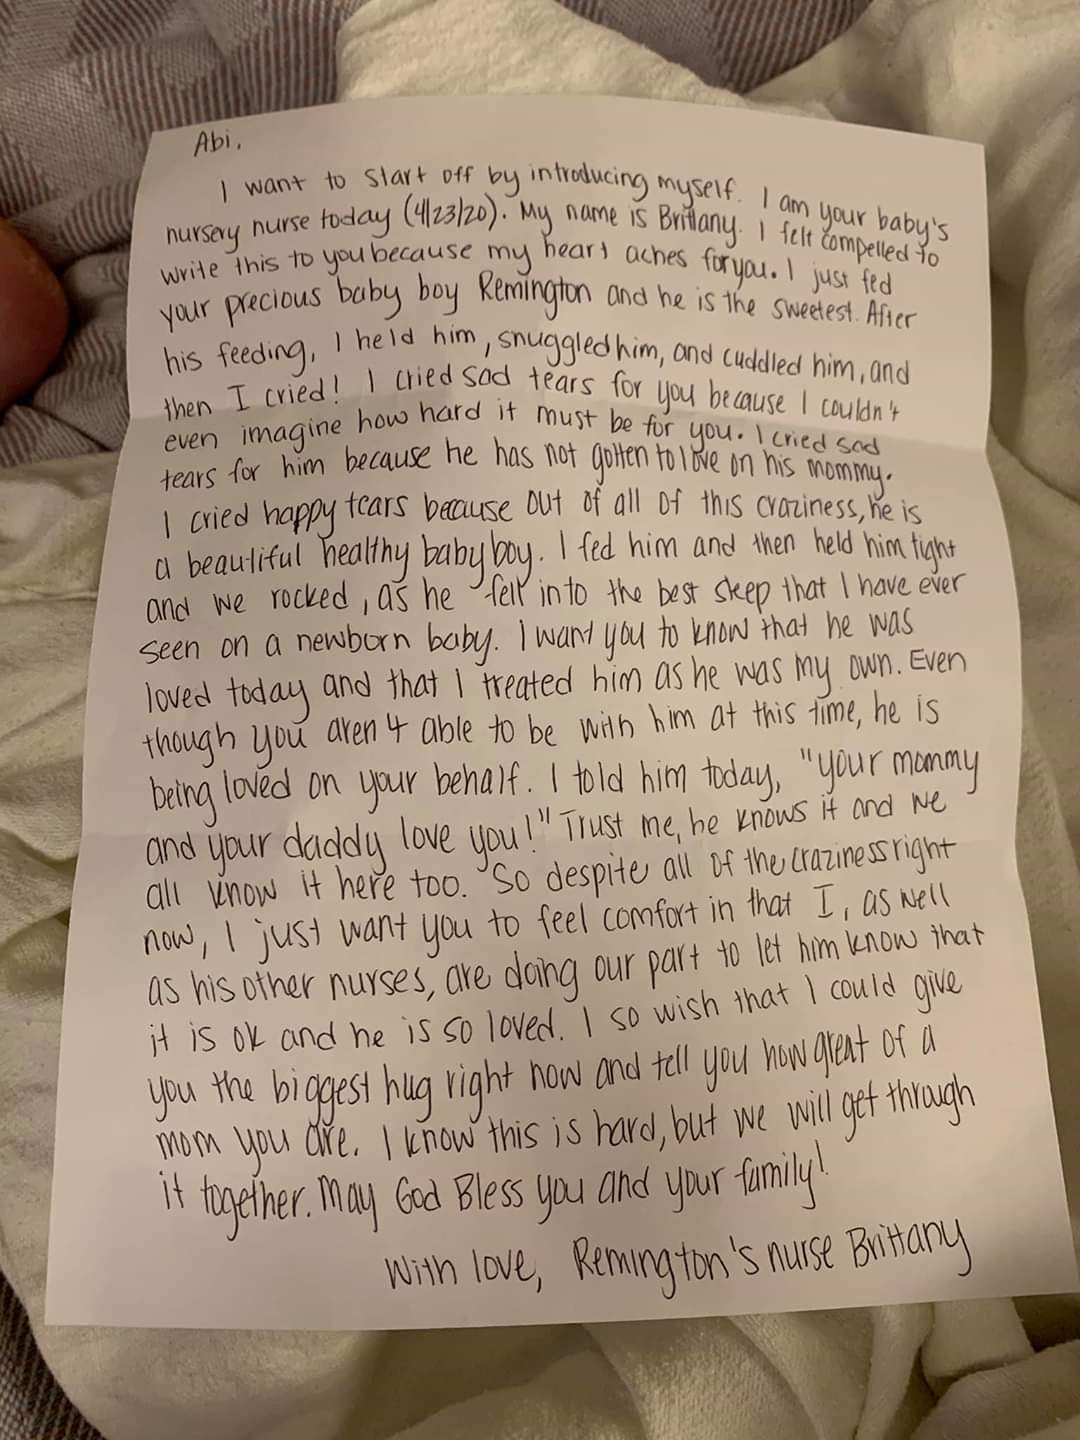 Abi,
I want to start off by introducing myself. I am your baby's
nursery nurse today (4/23/20). My name is Brittany. I felt compelled to
write this to you because my heart aches for you. I just fed
your precious baby boy Remington and he is the sweetest. After
his feeding, I held him, snuggled him, and cuddled him, and
then I cried! I cried sad tears for you because I couldn't
even imagine how hard it must be for you. I cried sad
tears for him because he has not gotten to love on his mommy.
I cried happy tears because out of all of this craziness, he is
a beautiful healthy baby boy. I fed him and then held him tight
and we rocked, as he fell into the best sleep that I have ever
seen on a newborn baby. I want you to know that he was
loved today and that I treated him as he was my own. Even
though you aren't able to be with him at this time, he is
being loved on your behalf. I told him today, "your mommy
and your daddy love you!" Trust me, he knows it and we
all know it here too. So despite all of the craziness right
now, I just want you to feel comfort in that I, as well
as his other nurses, are doing our part to let him know that
it is ok and he is so loved. I so wish that I could give
you the biggest hug right now and tell you how great of a
mom you are. I know this is hard, but we will get through
it together. May God Bless you and your family!
With love, Remington's nurse Brittany